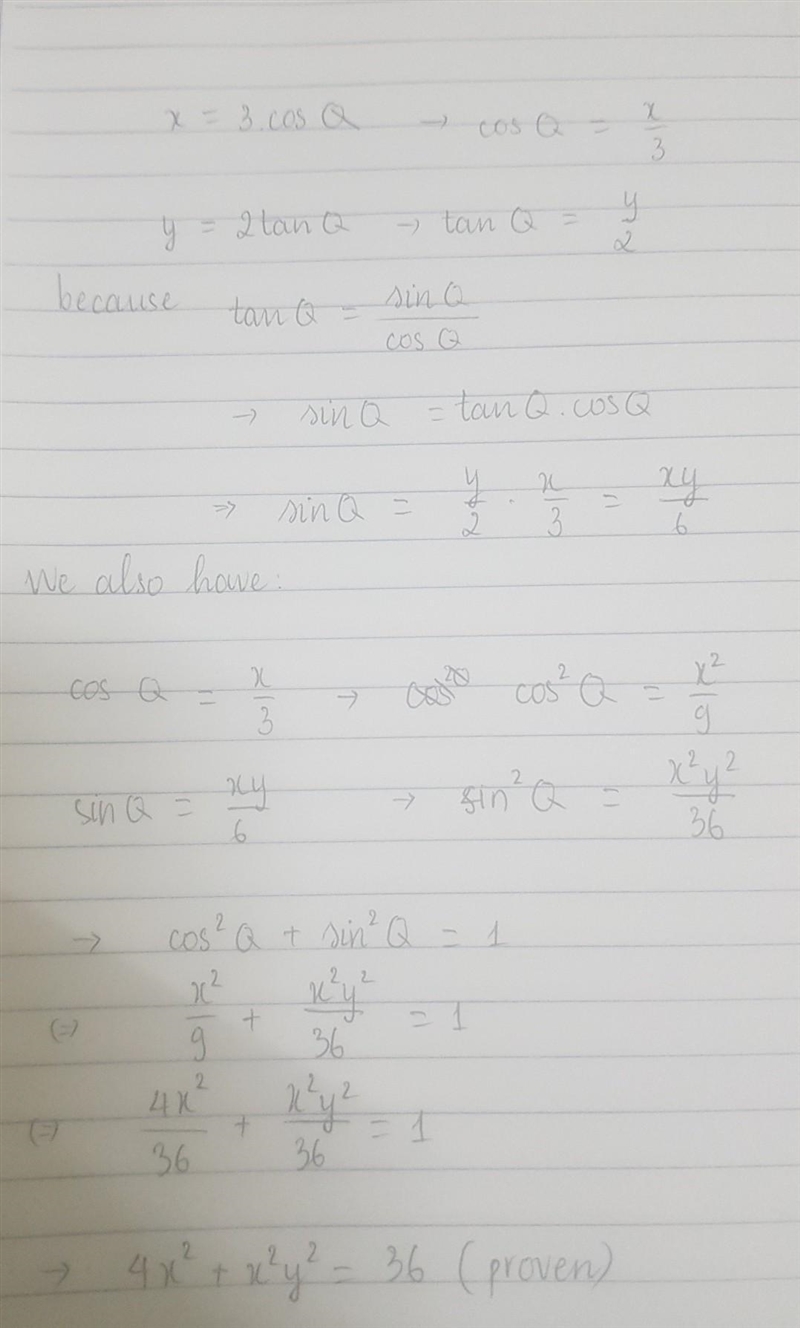 x = 3.cos Q → cos Q = x/3
y = 2tan Q → tan Q = y/2
because tan Q = sin Q/cos Q
→ sin Q = tan Q . cos Q
=> sin Q = y/2 . x/3 = xy/6
We also have:
cos Q = x/3 → cos² Q = x²/9
sin Q = xy/6 → sin² Q = x²y²/36
→ cos² Q + sin² Q = 1
(=) x²/9 + x²y²/36 = 1
(=) 4x²/36 + x²y²/36 = 1
→ 4x² + x²y² = 36 (proven)